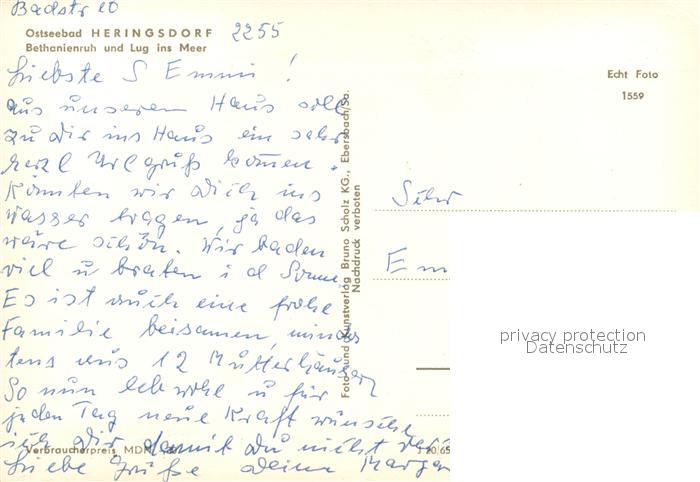 Badstr 20
Ostseebad HERINGSDORF
2255
Bethanienruh und Lug ins Meer
Liebste S Emmi !
aus unserem Haus soll
zu Dir ins Haus ein sehr
herzl Urlgruß kommen.
Könnten wir Dich ins
Wasser tragen, ja das
wäre schön. Wir baden
viel u braten i d Sonne
Es ist auch eine frohe
Familie beisammen, mindes
tens aus 12 Mutterhäusern
So nun leb wohl u für
jeden Tag neue Kraft wünsche
ich Dir damit Du nicht
Liebe Grüße Deine
Verbraucherpreis MDN
Foto- und Kunstverlag Bruno Scholz KG., Ebersbach/Sa.
Nachdruck verboten
Echt Foto
1559
Em
privacy protection
Datenschutz
J 20/65